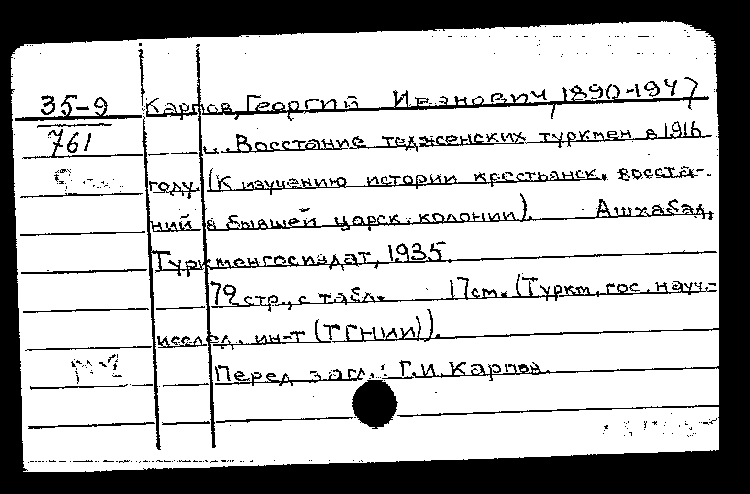 35-9 Карпов, Георгий Иванович, 1890-1947
761 ... Восстание тедженских туркмен в 1916
году. (К изучению истории крестьянск. восста-
ний в бывшей царск. колонии). Ашхабад,
Туркменгосиздат, 1935.
72 стр., с табл. 17 см. (Туркм. гос. науч.-
исслед. ин-т (ТГНИИ)).
М-2 Перед загл.: Г.И. Карпов.